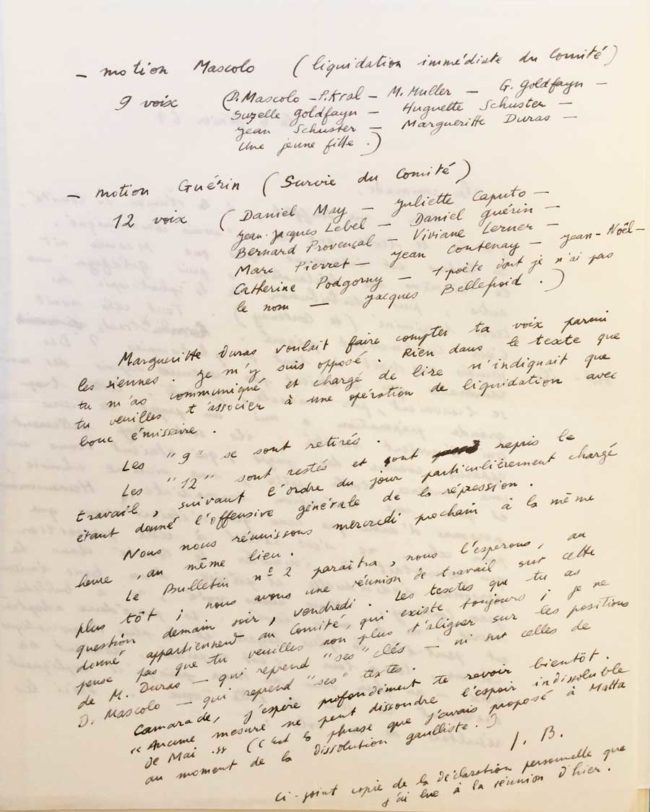 — motion Mascolo (liquidation immédiate du Comité)
9 voix (D. Mascolo – P. Kral – M. Muller – G. Goldfayn –
Suzelle Goldfayn – Huguette Schuster –
Jean Schuster – Marguerite Duras –
Une jeune fille.)
— motion Guérin (Survie du Comité)
12 voix (Daniel May – Juliette Caputo –
Jean-Jacques Lebel – Daniel Guérin –
Bernard Provençal – Viviane Lerner –
Marc Pierret – Jean Contenay – Jean-Noël –
Catherine Podgorny – 1 poète dont je n'ai pas
le nom – Jacques Bellefroid.)
Marguerite Duras voulait faire compter ta voix parmi
les siennes. Je m'y suis opposé. Rien dans le texte que
tu m'as communiqué et chargé de lire n'indiquait que
tu veuilles t'associer à une opération de liquidation avec
bouc émissaire.
Les "9" se sont retirés.
Les "12" sont restés et ont repris le
travail, suivant l'ordre du jour particulièrement chargé
étant donné l'offensive générale de la répression.
Nous nous réunissons mercredi prochain à la même
heure, au même lieu.
Le Bulletin n° 2 paraîtra, nous l'espérons, au
plus tôt ; nous avons une réunion de travail sur cette
question demain soir, vendredi. Les textes que tu as
donné appartiennent au Comité, qui existe toujours ; je ne
pense pas que tu veuilles non plus t'aligner sur les positions
de M. Duras – qui reprend "ses" clés – ni sur celles de
D. Mascolo – qui reprend "ses" textes.
Camarade, j'espère profondément te revoir bientôt.
"Aucune mesure ne peut dissoudre l'espoir indissoluble
de Mai." (C'est la phrase que j'avais proposé à Matta
au moment de la dissolution gaulliste.)
J. B.
Ci-joint copie de la déclaration personnelle que
j'ai lue à la réunion d'hier.